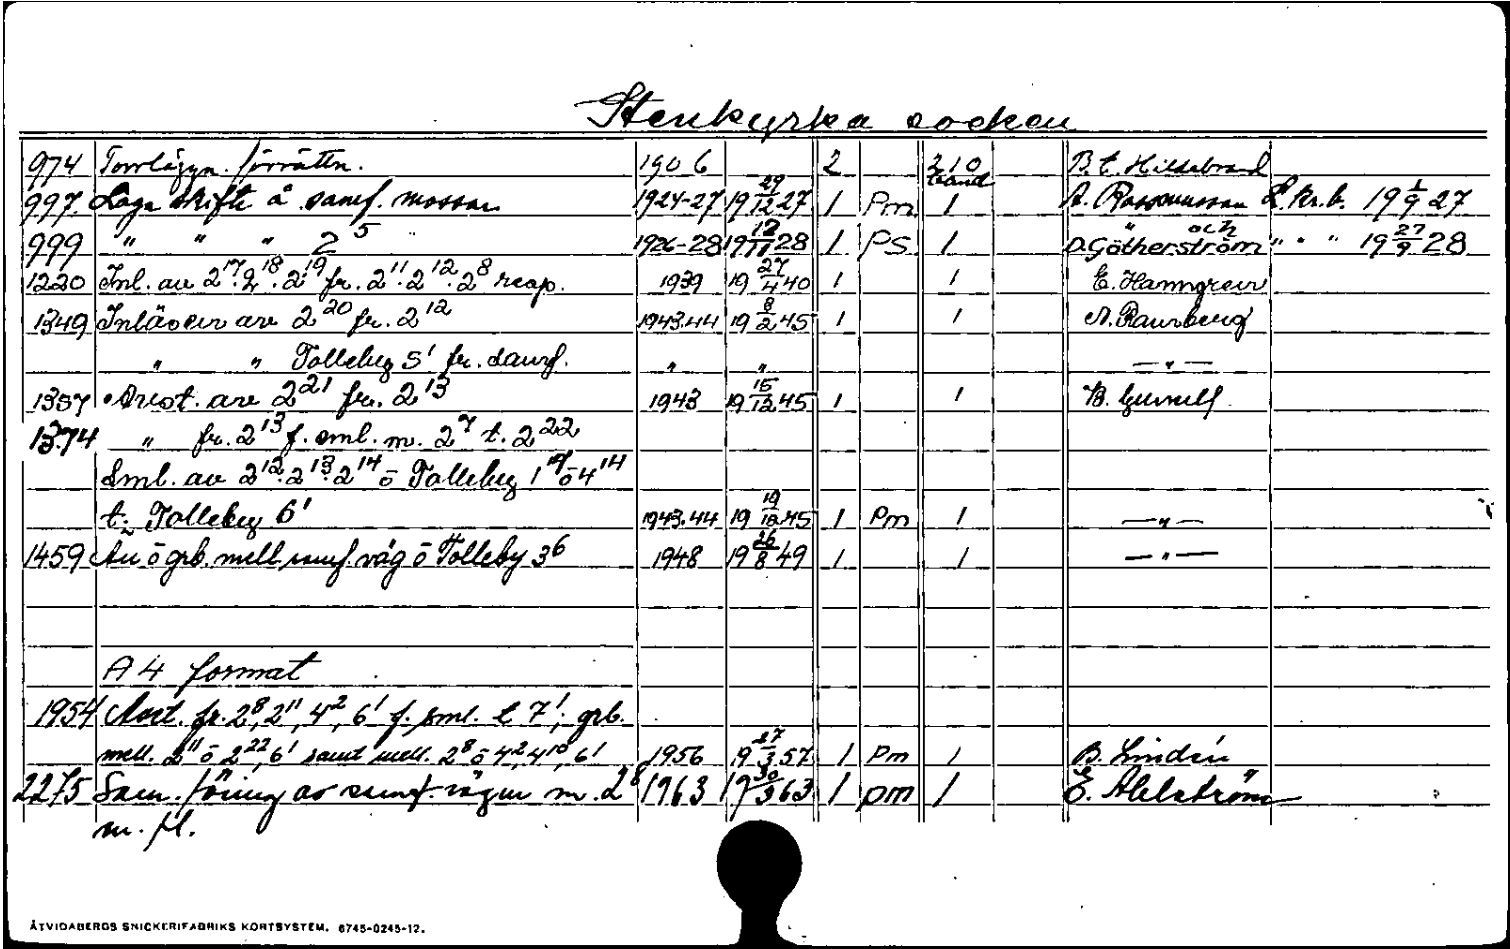 Stenkyrka socken
974 Torrläggn. förrättn. 1906 2 210 B. E. Hildebrand
997. Laga skifte å samf. mossar 1924-27 19 29/12 27 1 Pm band 1 A. Rasmusson L.kr.b. 19 1/9 27
999 " " " 2⁵ 1926-28 19 12/11 28 1 Ps 1 " och O. Götherström " " " 19 27/9 28
1220 Sml. av 2¹⁷. 2¹⁸. 2¹⁹ fr. 2¹¹. 2¹². 2⁸ resp. 1939 19 27/4 40 1 1 E. Hanngren
1349 Inlösen av 2²⁰ fr. 2¹² 1943.44 19 8/2 45 1 1
" " Tolleby 5¹ fr. samf. " " —"—
1357 Avst. av 2²¹ fr. 2¹³ 1943 19 15/12 45 1 1 B.
1374 " fr. 2¹³ f. sml. m. 2⁷ t. 2²²
Sml. av 2¹². 2¹³. 2¹⁴ o Tolleby 1¹⁹ o 4¹⁴
t. Tolleby 6¹ 1943.44 19 19/12 45 1 Pm 1 —"—
1459 Av o grb. mell samf. väg o Tolleby 3⁶ 1948 19 26/8 49 1 1 —"—
A4 format
1954 Avst. fr. 2⁸, 2¹¹, 4², 6¹ f. sml. t 7¹; grb.
mell. 2¹¹ o 2²², 6¹ samt mell. 2⁸ o 4², 4¹⁰, 6¹ 1956 19 27/3 57 1 Pm 1 B. Lindén
2275 Sam.föring av samf. vägar m. 2⁸ 1963 19 30/3 63 1 pm 1 E. Ahlström
m. fl.
ÅTVIDABERGS SNICKERIFABRIKS KORTSYSTEM. 6745-0245-12.